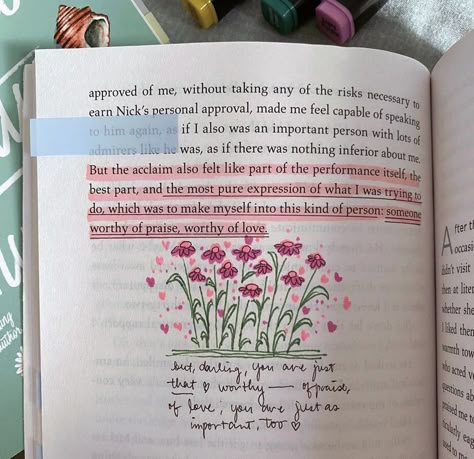 approved of me, without taking any of the risks necessary to
earn Nick's personal approval, made me feel capable of speaking
to him again, as if I also was an important person with lots of
admirers like he was, as if there was nothing inferior about me.
But the acclaim also felt like part of the performance itself, the
best part, and the most pure expression of what I was trying to
do, which was to make myself into this kind of person: someone
worthy of praise, worthy of love.
but, darling, you are just
that ♡ worthy — of praise,
of love; you are just as
important, too ♡
After th
occasio
didn't visit
then at liter
whether she
I liked them
warmth tow
who acted v
questions ab
praised me t
ticularly eag
used to me